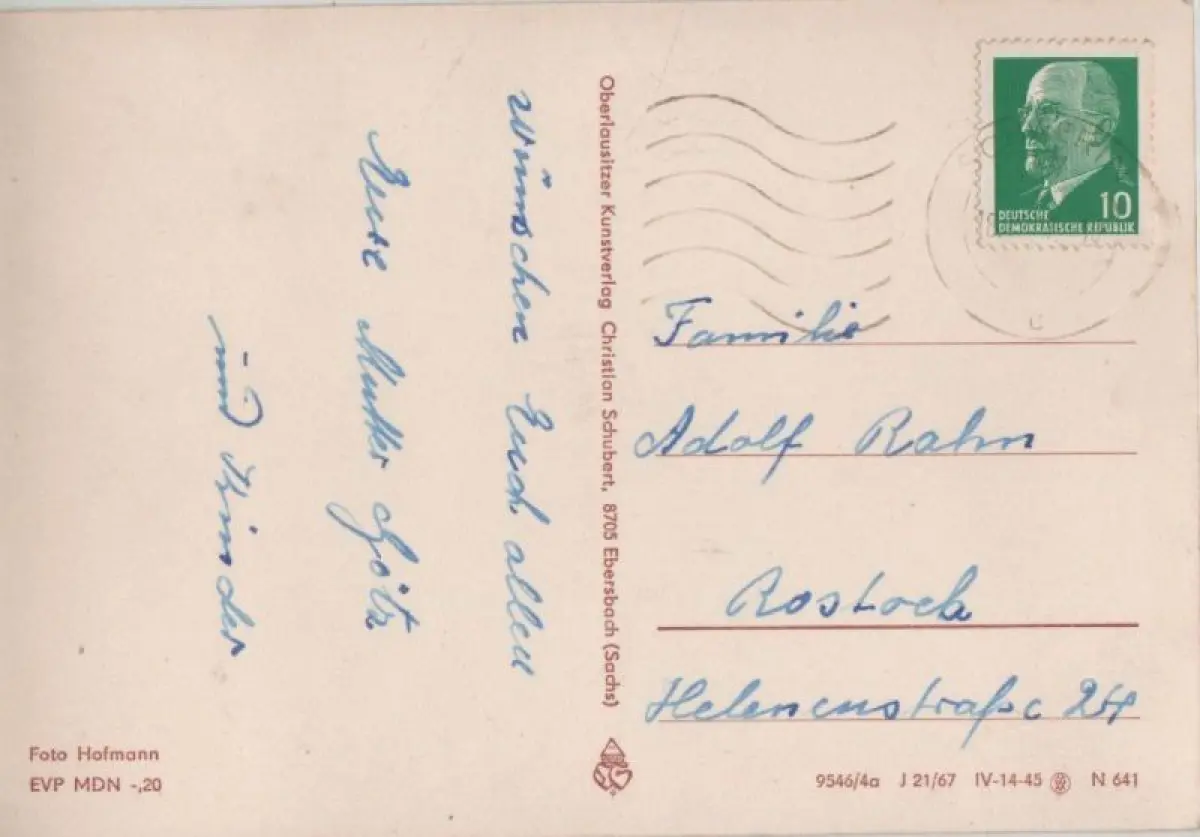 wünschen Euch allen
Eure Mutter Götz
und Kinder
Oberlausitzer Kunstverlag Christian Schubert, 8705 Ebersbach (Sachs)
10
DEUTSCHE
DEMOKRATISCHE REPUBLIK
Familie
Adolf Rahn
Rostock
Helenenstraße
Foto Hofmann
EVP MDN -,20
9546/4a J 21/67 IV-14-45 N 641